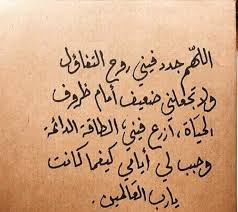 اللهم جدد فيني روح التفاؤل
ولا تجعلني ضعيف أمام ظروف
الحياة، ازرع فيني الطاقة الدائمة
وحبب لي أيامي كيفما كانت
يارب العالمين.